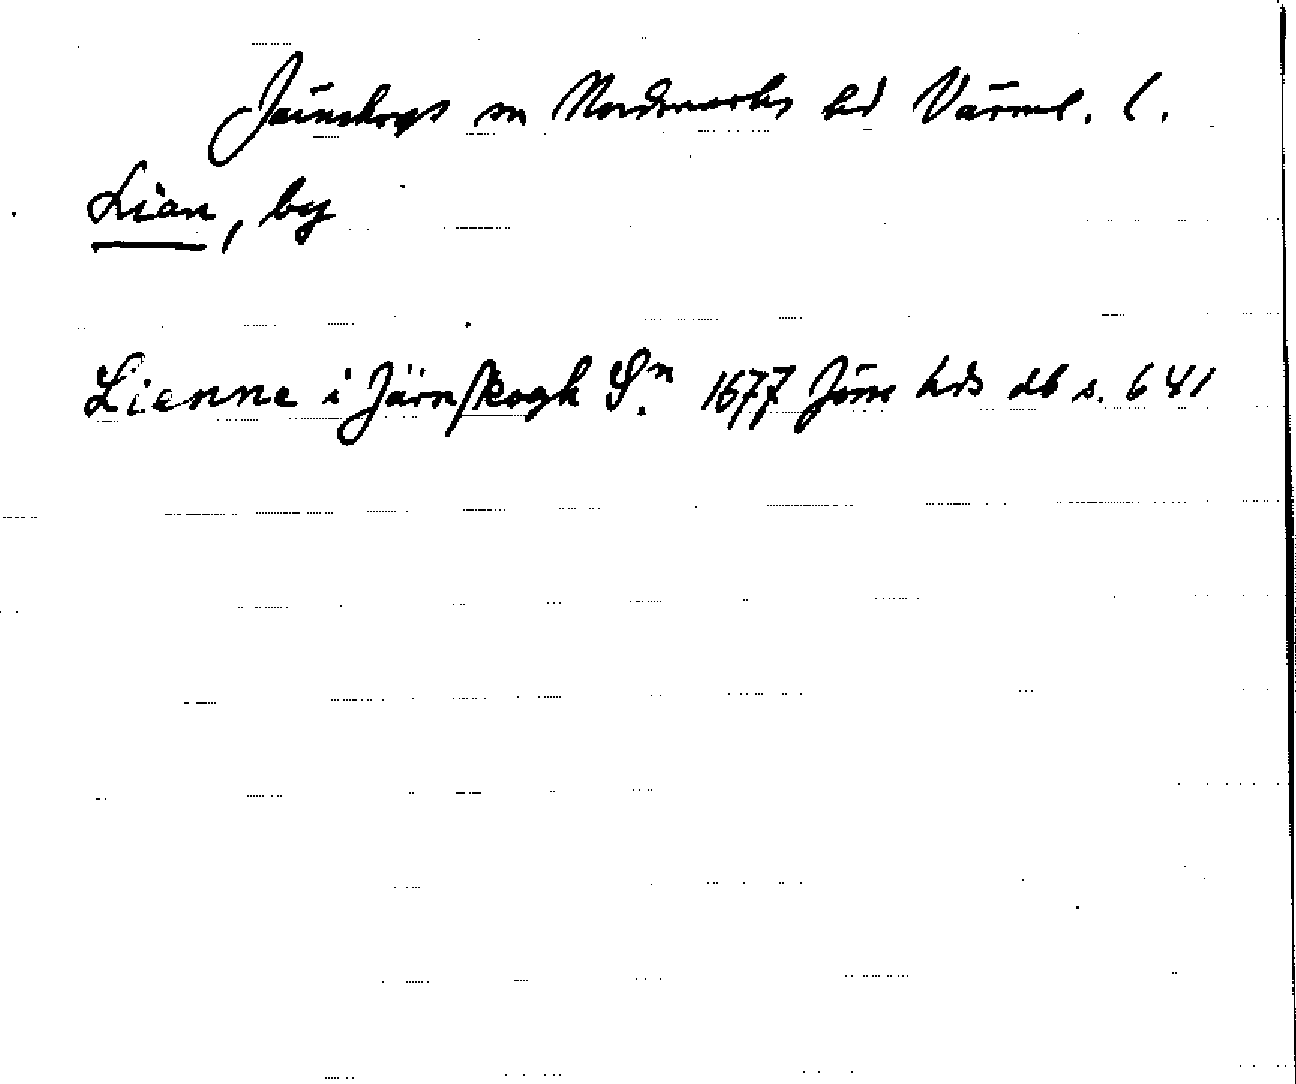 Järnskogs sn Nordmarks hd Värml. l.
Lian, by
Lienne i Järnskogh Sn. 1677 Jöse hds db s. 641